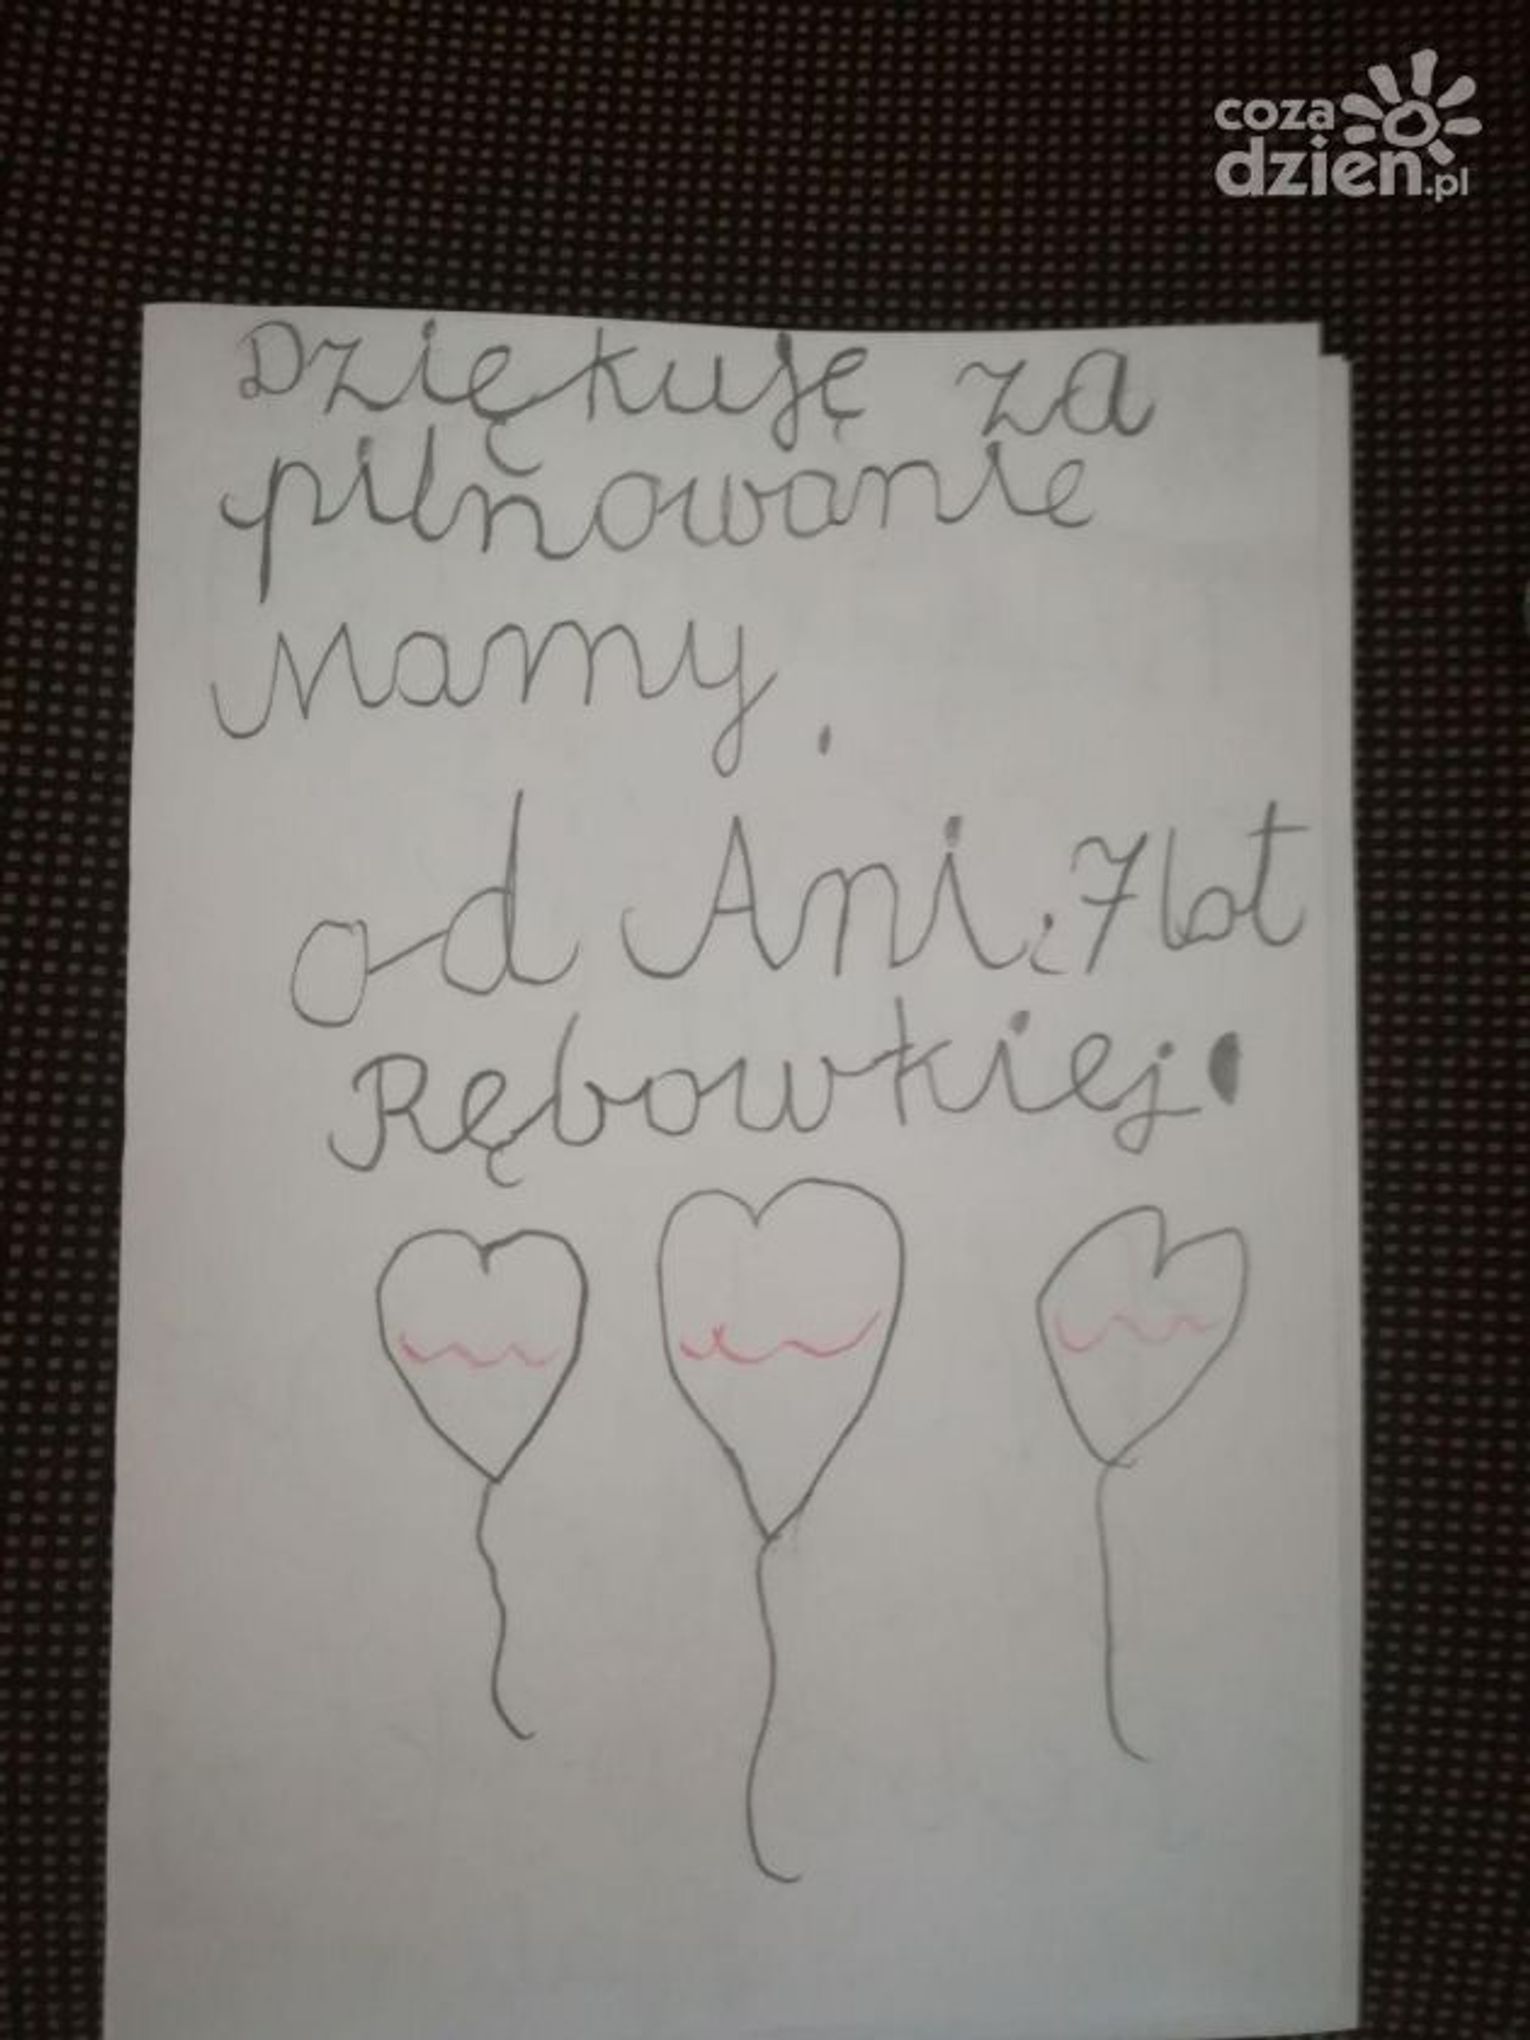 coza
dzien.pl
Dziękuję za
pilnowanie
Mamy.
od Ani 7lat
Rębowkiej